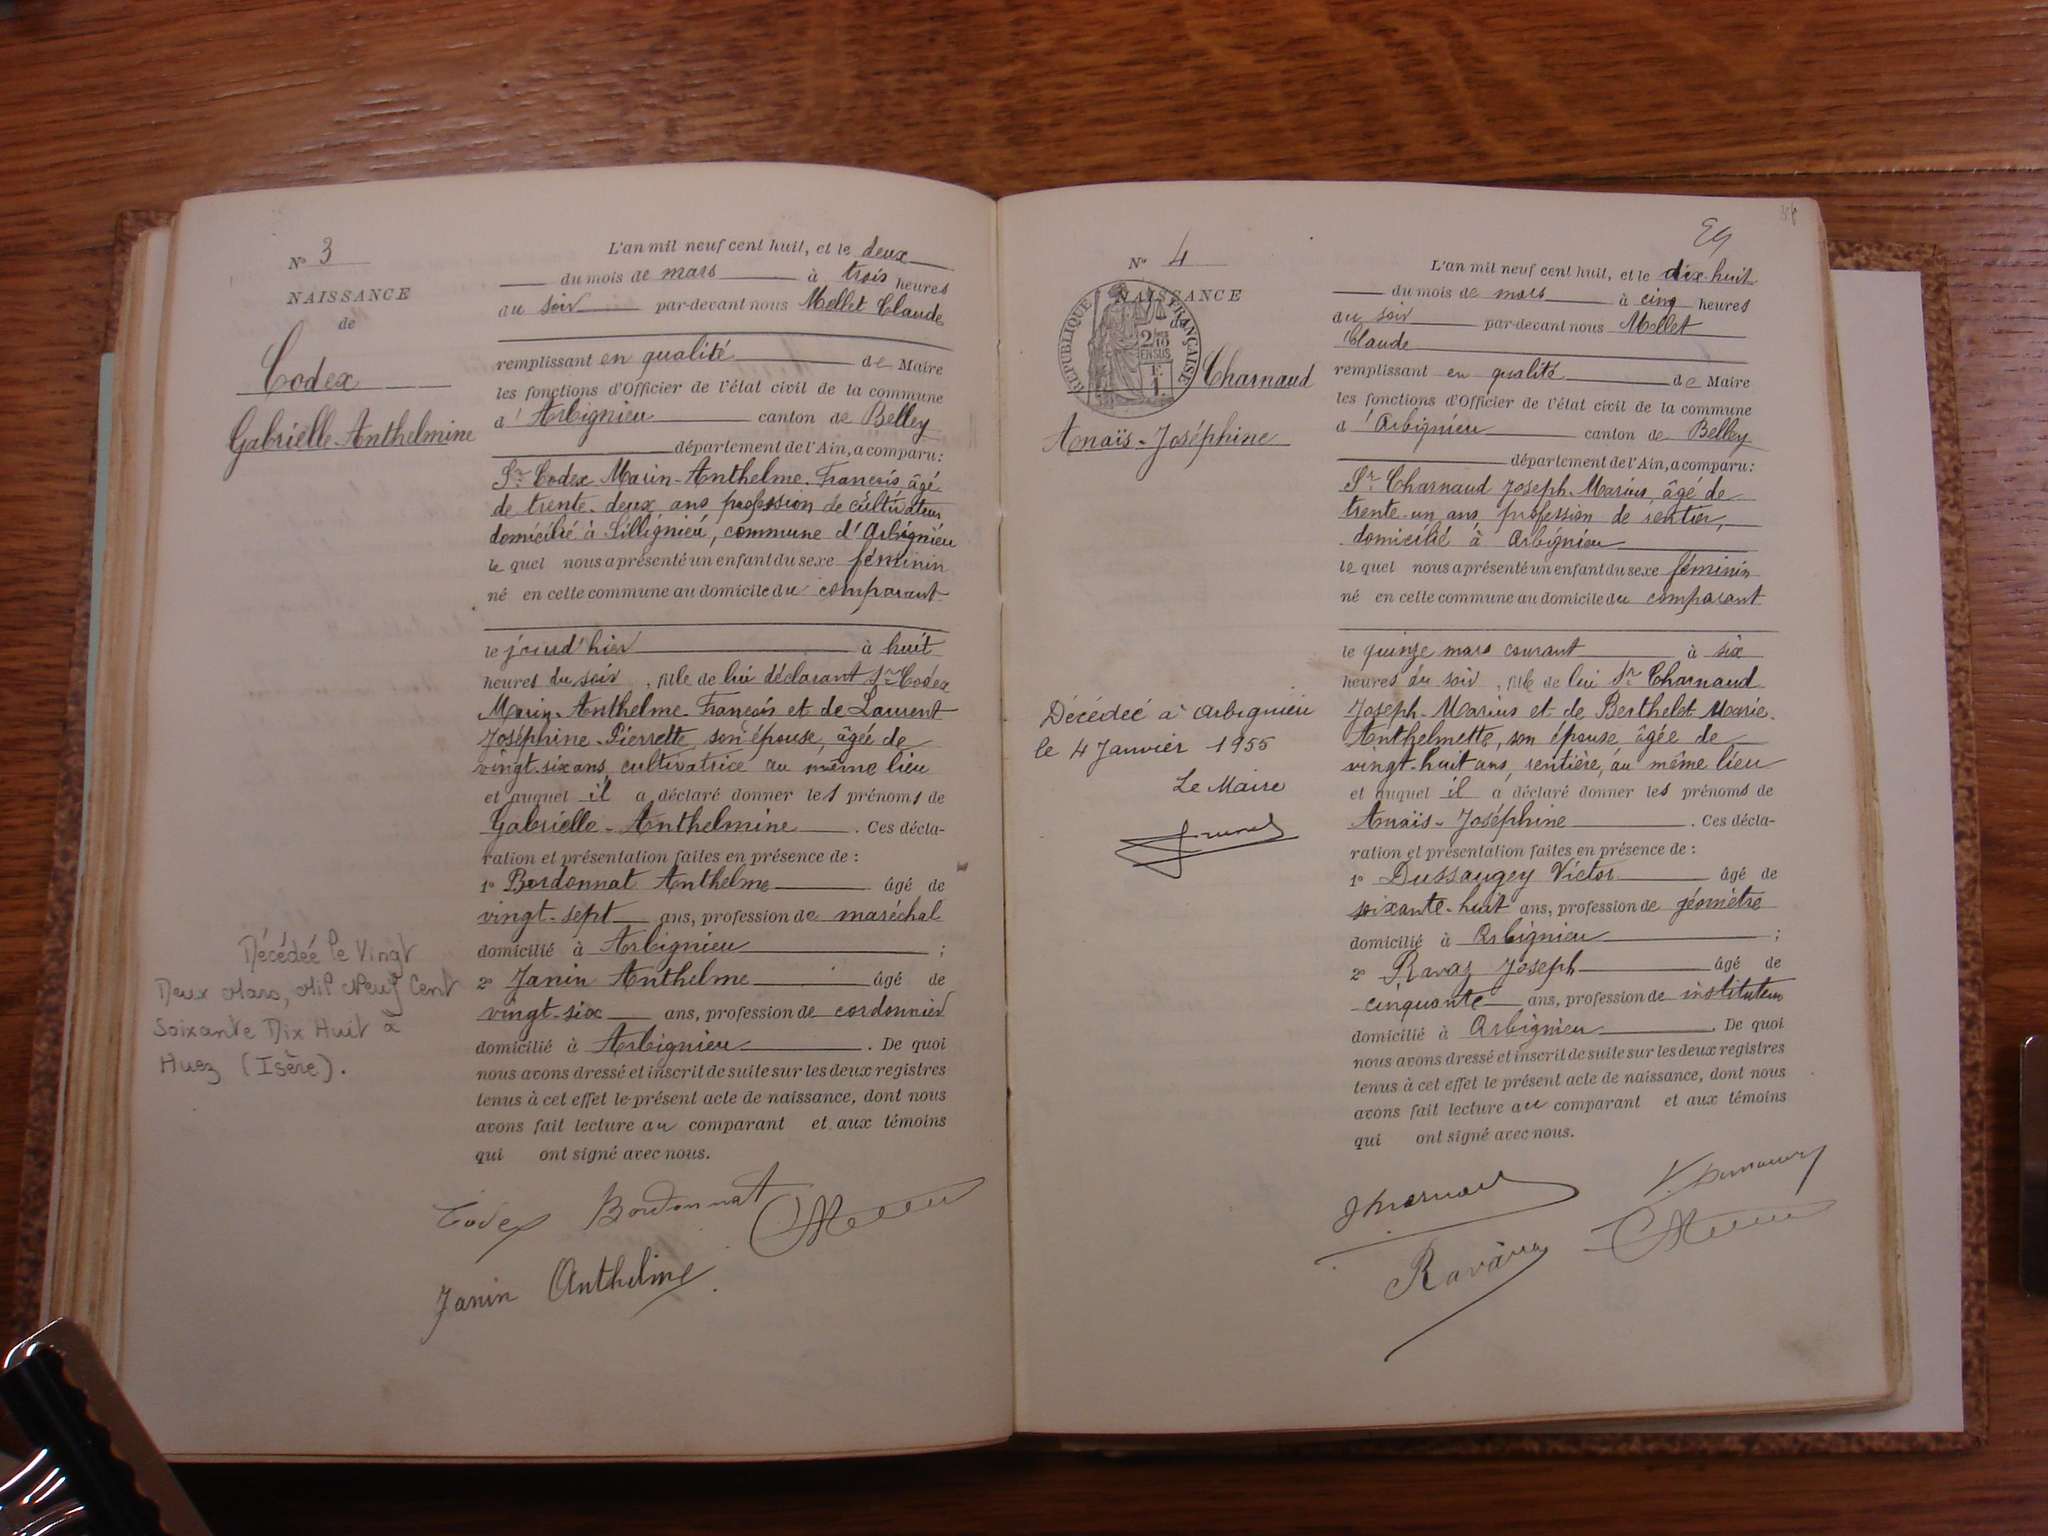 N° 3
NAISSANCE
de
Codex
Gabrielle-Anthelmine
L'an mil neuf cent huit, et le deux
du mois de mars à trois heures
au soir par-devant nous Mellet Claude
remplissant en qualité de Maire
les fonctions d'Officier de l'état civil de la commune
d'Arbignieu canton de Belley
département de l'Ain, a comparu:
Sr Codex Marin-Anthelme-François âgé
de trente-deux ans profession de cultivateur
domicilié à Sillignieu, commune d'Arbignieu
le quel nous a présenté un enfant du sexe féminin
né en cette commune au domicile du comparant
le jourd'hier à huit
heures du soir, fille de lui déclarant Sr Codex
Marin-Anthelme-François et de Laurent
Joséphine-Pierrette, son épouse, âgée de
vingt-six ans, cultivatrice au même lieu
et auquel il a déclaré donner les prénoms de
Gabrielle-Anthelmine. Ces décla-
ration et présentation faites en présence de :
1° Bordonnat Anthelme âgé de
vingt-sept ans, profession de maréchal
domicilié à Arbignieu ;
2° Janin Anthelme âgé de
vingt-six ans, profession de cordonnier
domicilié à Arbignieu. De quoi
nous avons dressé et inscrit de suite sur les deux registres
tenus à cet effet le présent acte de naissance, dont nous
avons fait lecture au comparant et aux témoins
qui ont signé avec nous.
Codex Bordonnat
Janin Anthelme
Décédée le Vingt
Deux Mars, Mil Neuf Cent
Soixante Dix Huit à
Huez (Isère).
N° 4
NAISSANCE
de
RÉPUBLIQUE FRANÇAISE
2/10 EN SUS
Charnaud
Anaïs-Joséphine
L'an mil neuf cent huit, et le dix-huit
du mois de mars à cinq heures
au soir par-devant nous Mellet
Claude
remplissant en qualité de Maire
les fonctions d'Officier de l'état civil de la commune
d'Arbignieu canton de Belley
département de l'Ain, a comparu:
Sr Charnaud Joseph-Marius, âgé de
trente-un ans profession de rentier,
domicilié à Arbignieu
le quel nous a présenté un enfant du sexe féminin
né en cette commune au domicile du comparant
le quinze mars courant à six
heures du soir, fille de lui Sr Charnaud
Joseph-Marius et de Berthelet Marie-
Anthelmette, son épouse, âgée de
vingt-huit ans, rentière, au même lieu
et auquel il a déclaré donner les prénoms de
Anaïs-Joséphine. Ces décla-
ration et présentation faites en présence de :
1° Dussaugey Victor âgé de
soixante-huit ans, profession de géomètre
domicilié à Arbignieu ;
2° Ravaz Joseph âgé de
cinquante ans, profession de instituteur
domicilié à Arbignieu. De quoi
nous avons dressé et inscrit de suite sur les deux registres
tenus à cet effet le présent acte de naissance, dont nous
avons fait lecture au comparant et aux témoins
qui ont signé avec nous.
Décédée à Arbignieu
le 4 Janvier 1955
Le Maire